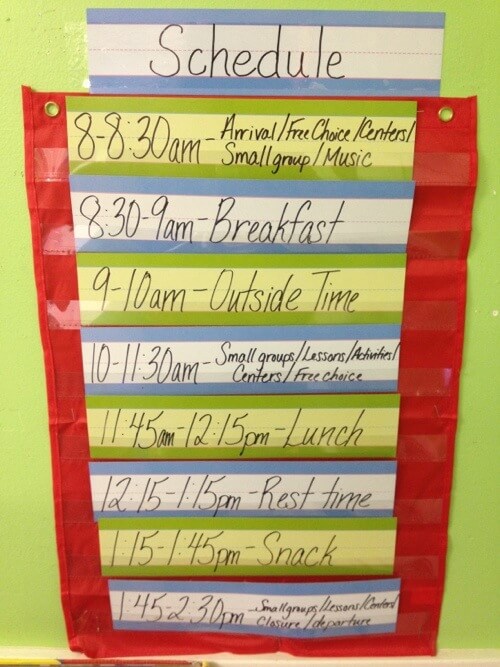 Schedule
8-8:30am- Arrival/Free Choice/Centers/
Small group/Music
8:30-9am-Breakfast
9-10am-Outside Time
10-11:30am- Small groups/Lessons/Activities/
Centers/Free choice
11:45am-12:15pm-Lunch
12:15-1:15pm-Rest time
1:15-1:45pm-Snack
1:45-2:30pm- Small groups/Lessons/Centers/
Closure/departure